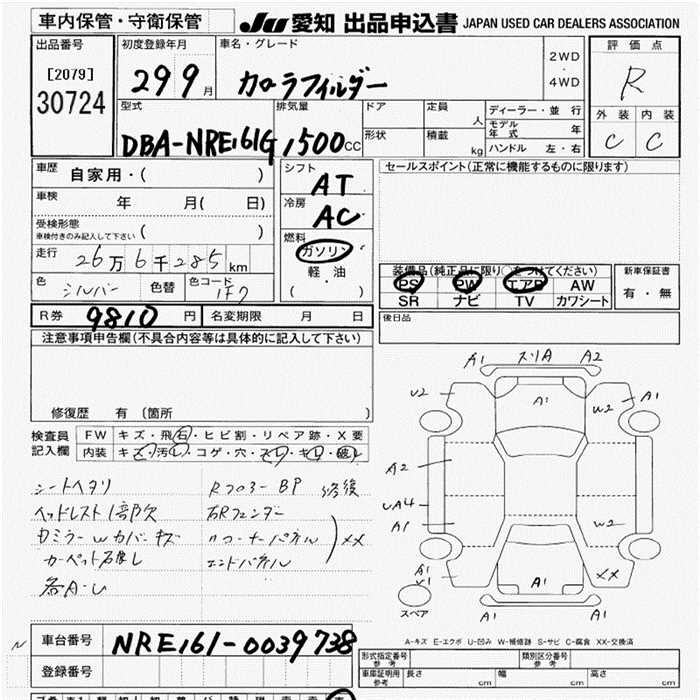 車内保管・守衛保管
JU 愛知 出品申込書 JAPAN USED CAR DEALERS ASSOCIATION
出品番号
[2079]
30724
初度登録年月
29 9月
車名・グレード
カローラフィルダー
2WD
・
4WD
評価点
R
外装 内装
C C
型式
DBA-NRE161G
排気量
1500cc
ドア
形状
定員 人
積載 kg
ディーラー・並行
モデル年式 年
ハンドル 左・右
車歴
自家用・( )
車検 年 月( 日)
受検形態
車検付きのみ記入して下さい ( )
走行 26万6千285km
色 シルバー 色替 色コード 1F7
シフト
AT
冷房
AC
燃料
ガソリン
軽油
( )
セールスポイント(正常に機能するものに限ります)
装備品(純正品に限り○をつけてください)
PS PW エアB AW
SR ナビ TV カワシート
新車保証書
有・無
R券 9810円 名変期限 月 日
後日品
注意事項申告欄(不具合内容等は具体的に記入して下さい)
修復歴 有 [箇所 ]
検査員記入欄
FW キズ・飛石・ヒビ割・リペア跡・X要
内装 キズ・汚レ・コゲ・穴・スレ・キレ・破レ
シートヘタリ
ヘッドレスト1部欠
カーペット右傷し
各A・U
Rフロアー BP 修復
右Rフェンダー
〃コーナーパネル
エンドパネル
XX
A1 スリA A2
U2 A1 W2 A1
A2
UA4
A1 W2
A1 A1 XX
A1
スペア
A-キズ E-エクボ U-凹み W-補修跡 S-サビ C-腐食 XX-交換済
N
車台番号 NRE161-0039738
登録番号
形式指定番号 参考 類別区分番号 参考
車庫証明用 参考 長さ cm 幅 cm 高さ cm